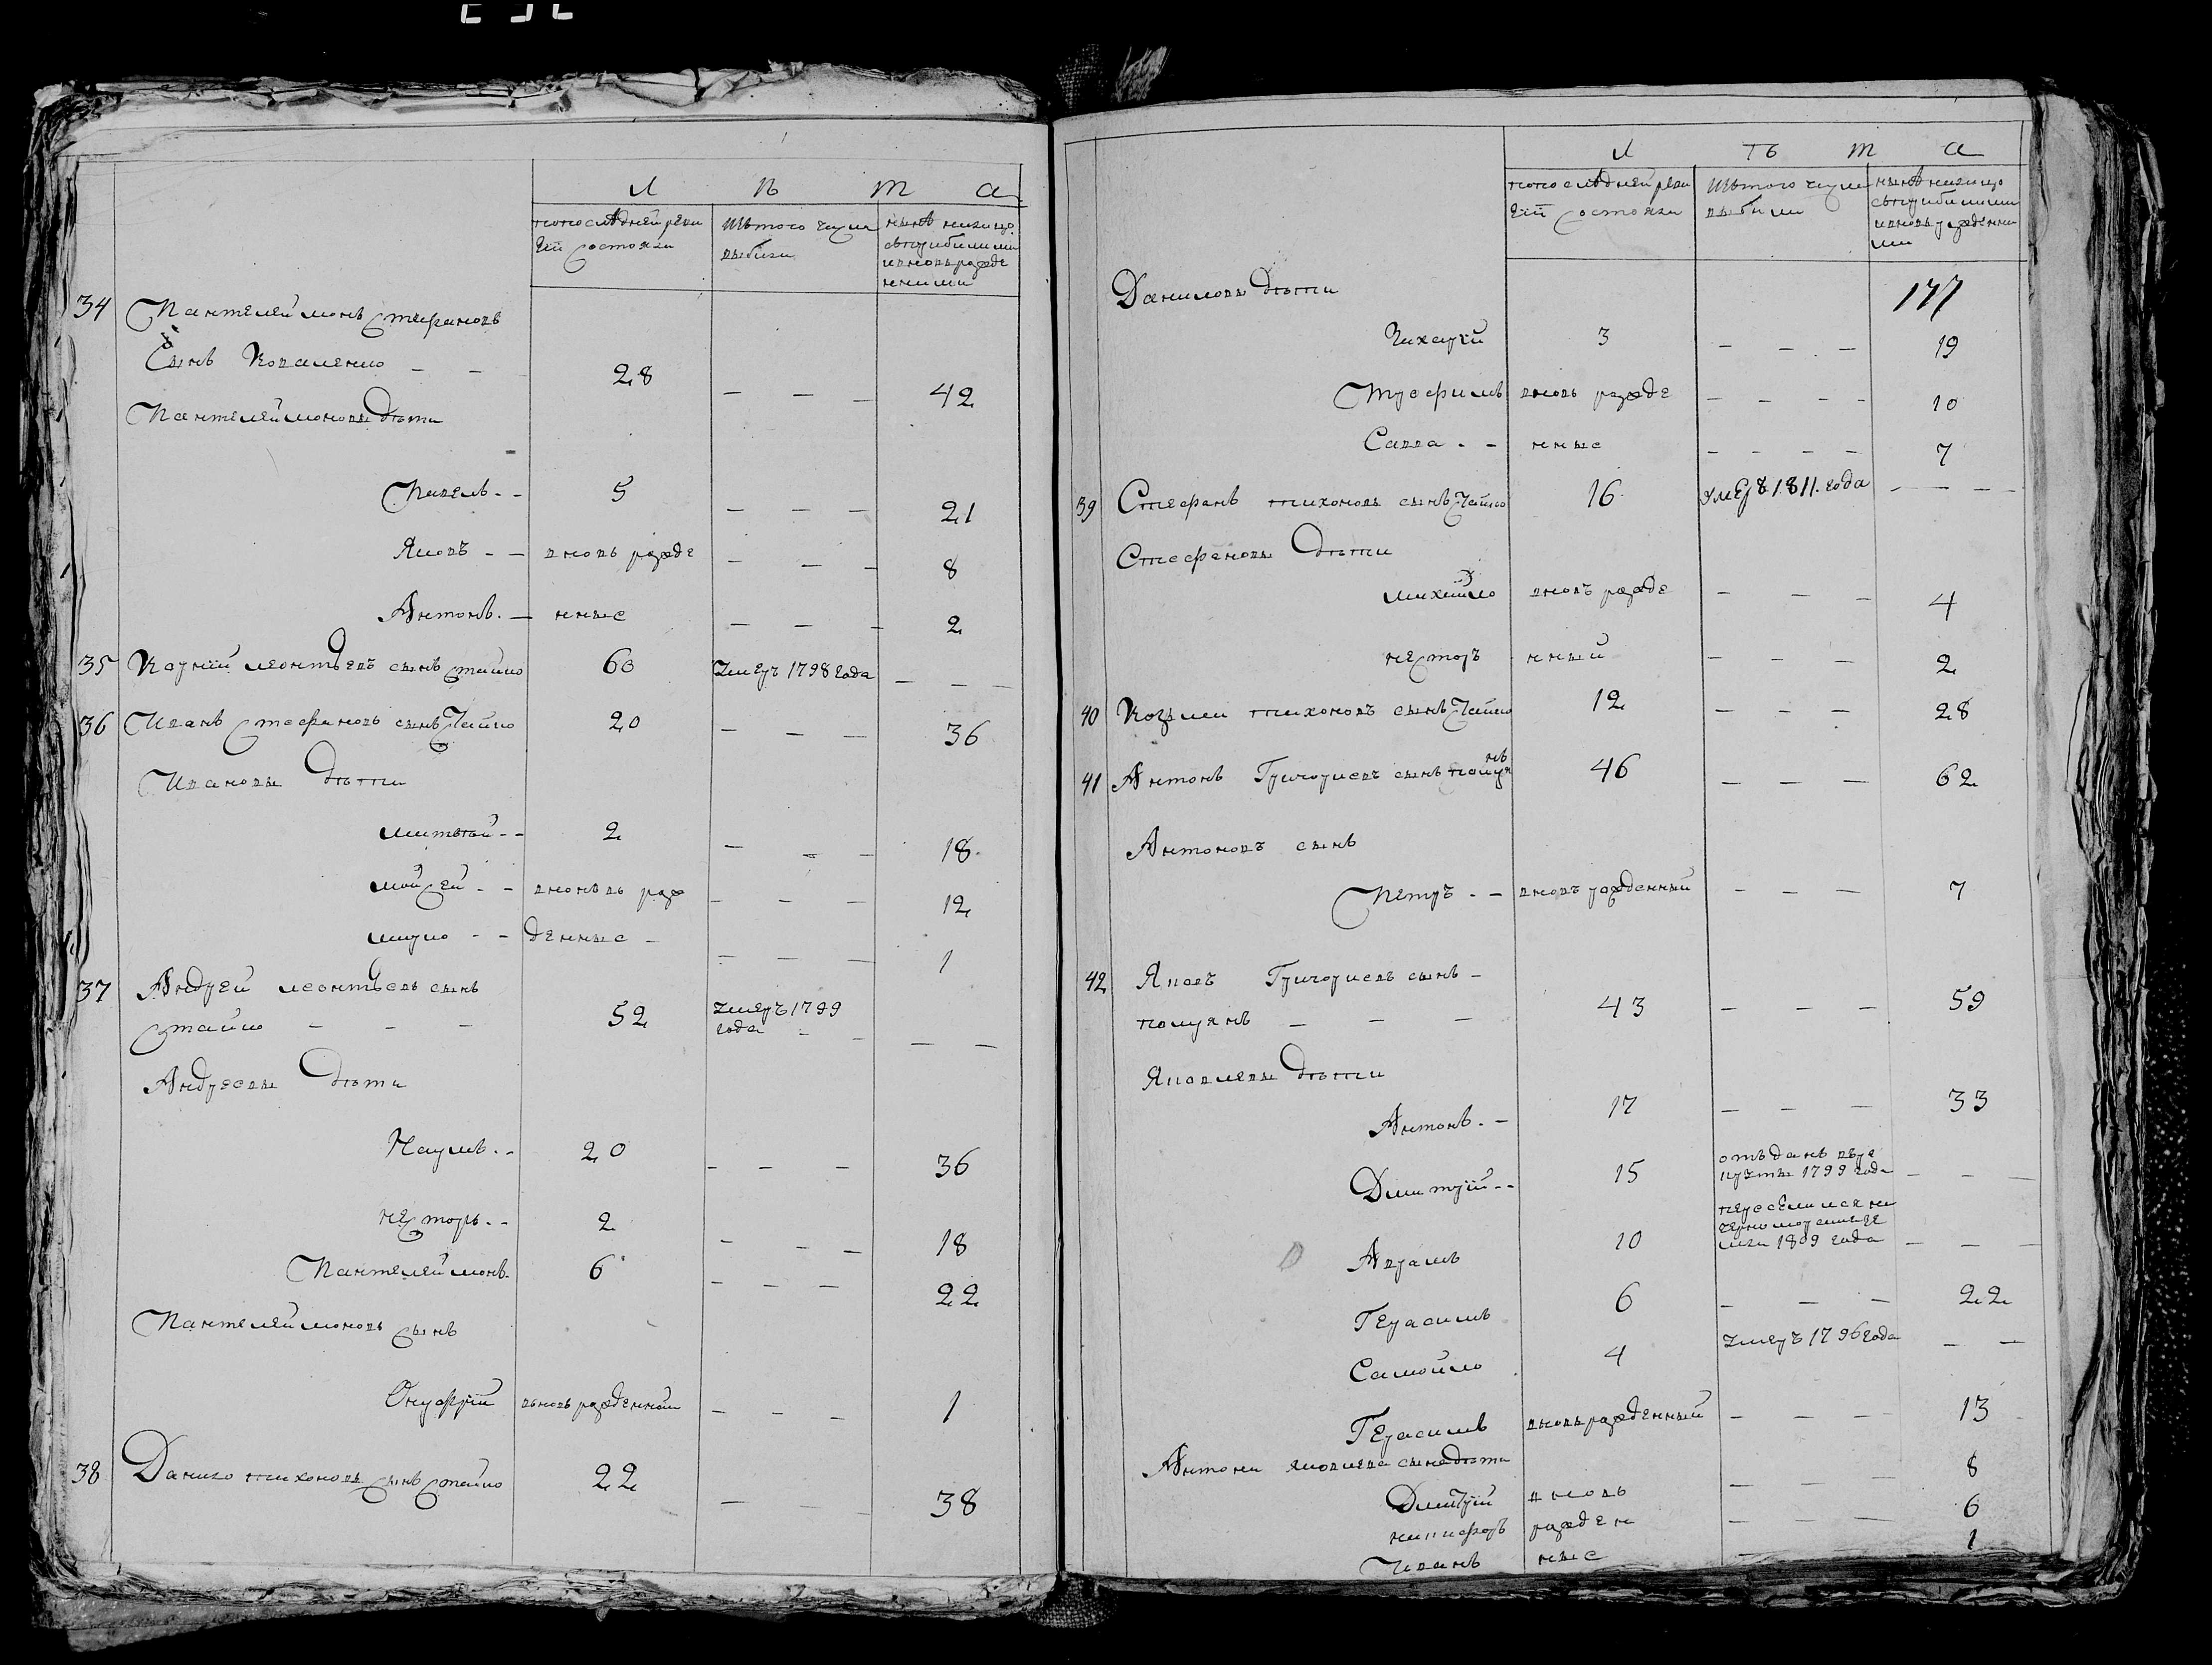 Л ѣ т а
попоследней реви
зіи состояли
изътого числа
выбыли
нынѣ налицо
съприбылыми
ивновьрожде
нными
34 Пантелеймонъ Стефановъ
Сынъ Коваленко - - 28 - - - 42
Пантелеймоновы дѣти
Павелъ - - 5 - - - 21
Яковъ - - вновь рожде - - - 8
Антонъ - нные - - - 2
35 Корнѣй леонтьевъ сынъ Стайко 60 умеръ 1798 года - - -
36 Иванъ Стефановъ сынъ Стайко 20 - - - 36
Ивановы дѣти
матвѣй - - 2 - - - 18
мойсей - - вновь рож - - - 12
марко - - денные - - - - 1
37 Андрей леонтьевъ сынъ
Стайко - - - 52 умеръ 1799
года - - - -
Андреевы дѣти
Наумъ - - 20 - - - 36
несторъ - - 2 - - - 18
Пантелеймонъ - 6 - - - 22
Пантелеймоновъ сынъ
Онуфрій вновь рожденный - - - 1
38 Данило тихоновъ сынъ Стайко 22 - - 38
Л ѣ т а
попоследней реви
зіи состояли
изътого числа
выбыли
нынѣ налицо
съприбылыми
ивновь рожденны
ми
177
Даниловы дѣти
Захарій 3 - - - 19
Трофимъ вновь рожде - - - - 10
Савва - - нные - - - - 7
39 Стефанъ тихоновъ сынъ Стайко 16 умеръ 1811 года - - -
Стефановы дѣти
михайло вновъ рожде - - - 4
несторъ нный - - - 2
40 Козьма тихоновъ сынъ Стайко 12 - - - 28
41 Антонъ Григориевъ сынъ полуянъ 46 - - - 62
Антоновъ сынъ
Петръ - - вновъ рожденный - - - 7
42 Яковъ Григориевъ сынъ -
полуянъ - - - 43 - - - 59
Яковлевы дѣти
Антонъ - - 17 - - - 33
Дмитрій - - 15 отъданъ врѣ
круты 1799 года - - -
Аврамъ 10 переселился на
черноморские
мли 1809 года - - -
Герасимъ 6 - - - 22
Самойло 4 умеръ 1796 года - -
Герасимъ вновь рожденный - - - 13
Антона яковлева сына дѣти
Дмитрій вновь - - - 8
никифоръ рожден - - - - 6
Иванъ ные - - 1